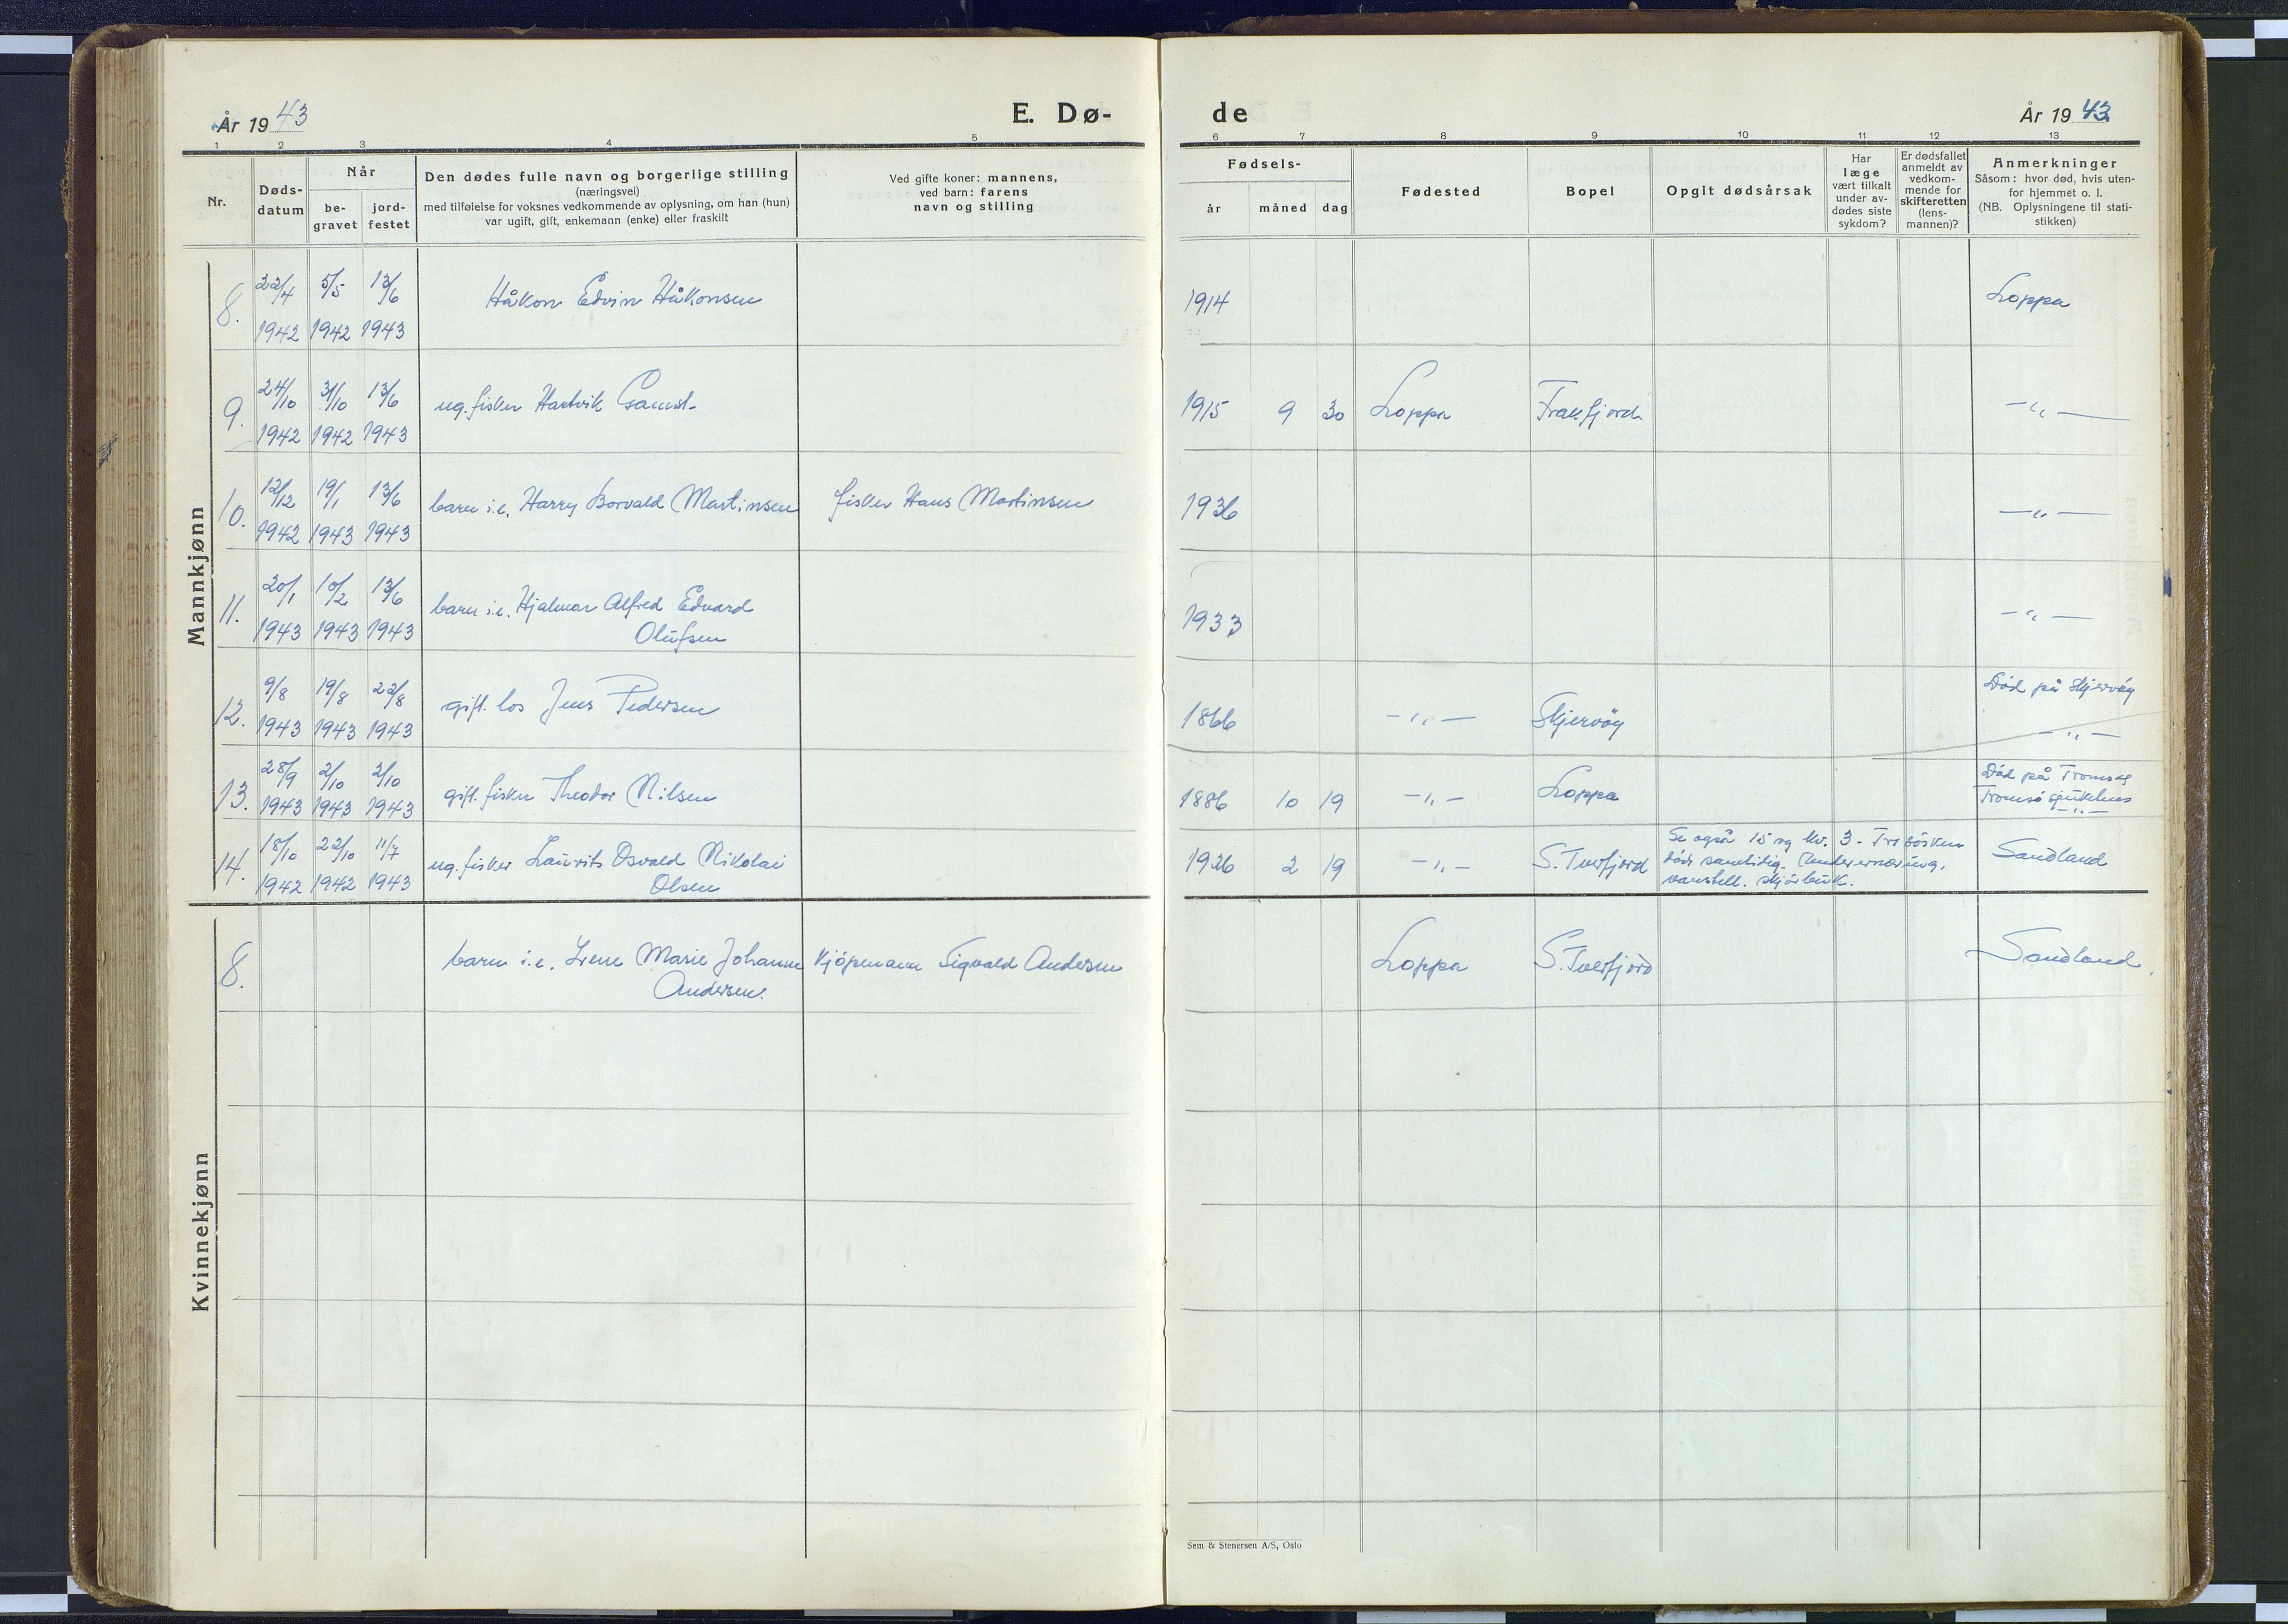 År 1943
E. Dø-
de
År 1943
1 2 3 4 5 6 7 8 9 10 11 12 13
Nr.
Døds-
datum
Når
be-
gravet
jord-
festet
Den dødes fulle navn og borgerlige stilling
(næringsvei)
med tilføielse for voksnes vedkommende av oplysning, om han (hun)
var ugift, gift, enkemann (enke) eller fraskilt
Ved gifte koner: mannens,
ved barn: farens
navn og stilling
Fødsels-
år måned dag
Fødested
Bopel
Opgit dødsårsak
Har
læge
vært tilkalt
under av-
dødes siste
sykdom?
Er dødsfallet
anmeldt av
vedkom-
mende for
skifteretten
(lens-
mannen)?
Anmerkninger
Såsom: hvor død, hvis uten-
for hjemmet o. l.
(NB. Oplysningene til stati-
stikken)
Mannkjønn
8. 22/4 5/5 13/6 Håkon Edvin Håkonsen 1914 Loppa
1942 1942 1943
9. 24/10 31/10 13/6 ug. fisker Hartvik Gamst. 1915 9 30 Loppa Frakfjord -"-
1942 1942 1943
10. 12/12 19/1 13/6 barn i.e. Harry Borvald Martinsen fisker Hans Martinsen 1936 -"-
1942 1943 1943
11. 20/1 10/2 13/6 barn i.e. Hjalmar Alfred Edvard 1933 -"-
1943 1943 1943 Olufsen
12. 9/8 19/8 22/8 gift. los Jens Pedersen 1866 -"- Skjervöy Död på Skjervöy
1943 1943 1943 -"-
13. 28/9 2/10 2/10 gift. fisker Theodor Nilsen 1886 10 19 -"- Loppa Död på
1943 1943 1943 Tromsö sjukehus
-"-
14. 18/10 22/10 11/7 ug. fisker Laurits Osvald Nikolai 1926 2 19 -"- S. Tverfjord Se også 15 og kv. 3. Tre sösken Sandland
1942 1942 1943 Olsen döde samtidig. Underernæring,
vanstell. skjörbuk.
Kvinnekjønn
8. barn i.e. Irene Marie Johanne Kjöpmann Sigvald Andersen Loppa S. Tverfjord Sandland.
Andersen.
Sem & Stenersen A/S, Oslo